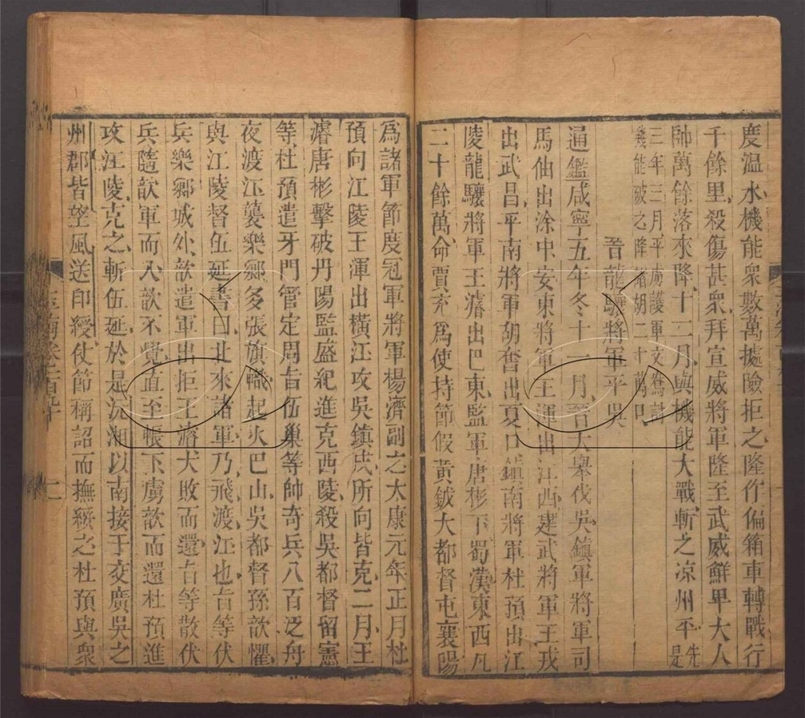 度温水機能衆數萬據險拒之隆作偏箱車轉戰行
千餘里殺傷甚衆拜宣威將軍隆至武威鮮卑大人
帥萬餘落來降十二月與機能大戰斬之凉州平先是
三年三月平虜護軍文鴦討
幾能破之降諸胡二十萬口
晉龍驤將軍平吳
通鑑咸寧五年冬十一月晉大舉伐吳鎮軍將軍司
馬伷出涂中安東將軍王渾出江西建武將軍王戎
出武昌平南將軍胡奮出夏口鎮南將軍杜預出江
陵龍驤將軍王濬出巴東監軍唐彬下蜀漢東西凡
二十餘萬命賈充爲使持節假黃鉞大都督屯襄陽
爲諸軍節度冠軍將軍楊濟副之大康元年正月杜
預向江陵王渾出橫江攻吳鎮戍所向皆克二月王
濬唐彬擊破丹陽監盛紀進克西陵殺吳都督留憲
等杜預遣牙門管定周旨伍巢等帥奇兵八百泛舟
夜渡江襲樂鄉多張旗幟起火巴山吳都督孫歆懼
與江陵督伍延書曰北來諸軍乃飛渡江也旨等伏
兵樂鄉城外歆遣軍出拒王濬大敗而還旨等散伏
兵隨歆軍而入歆不覺直至帳下虜歆而還杜預進
攻江陵克之斬伍延於是沅湘以南接于交廣吳之
州郡皆望風送印綬仗節稱詔而撫綏之杜預與衆